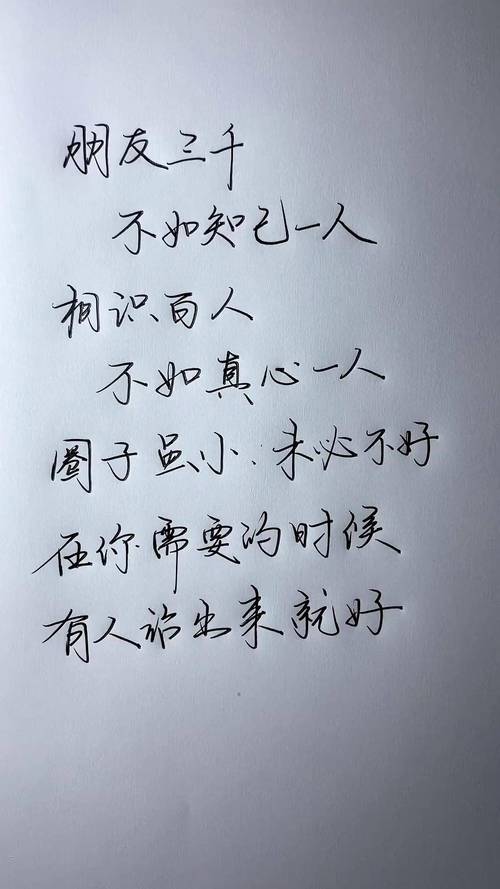 朋友三千
不如知己一人
相识百人
不如真心一人
圈子虽小,未必不好
在你需要的时候
有人站出来就好